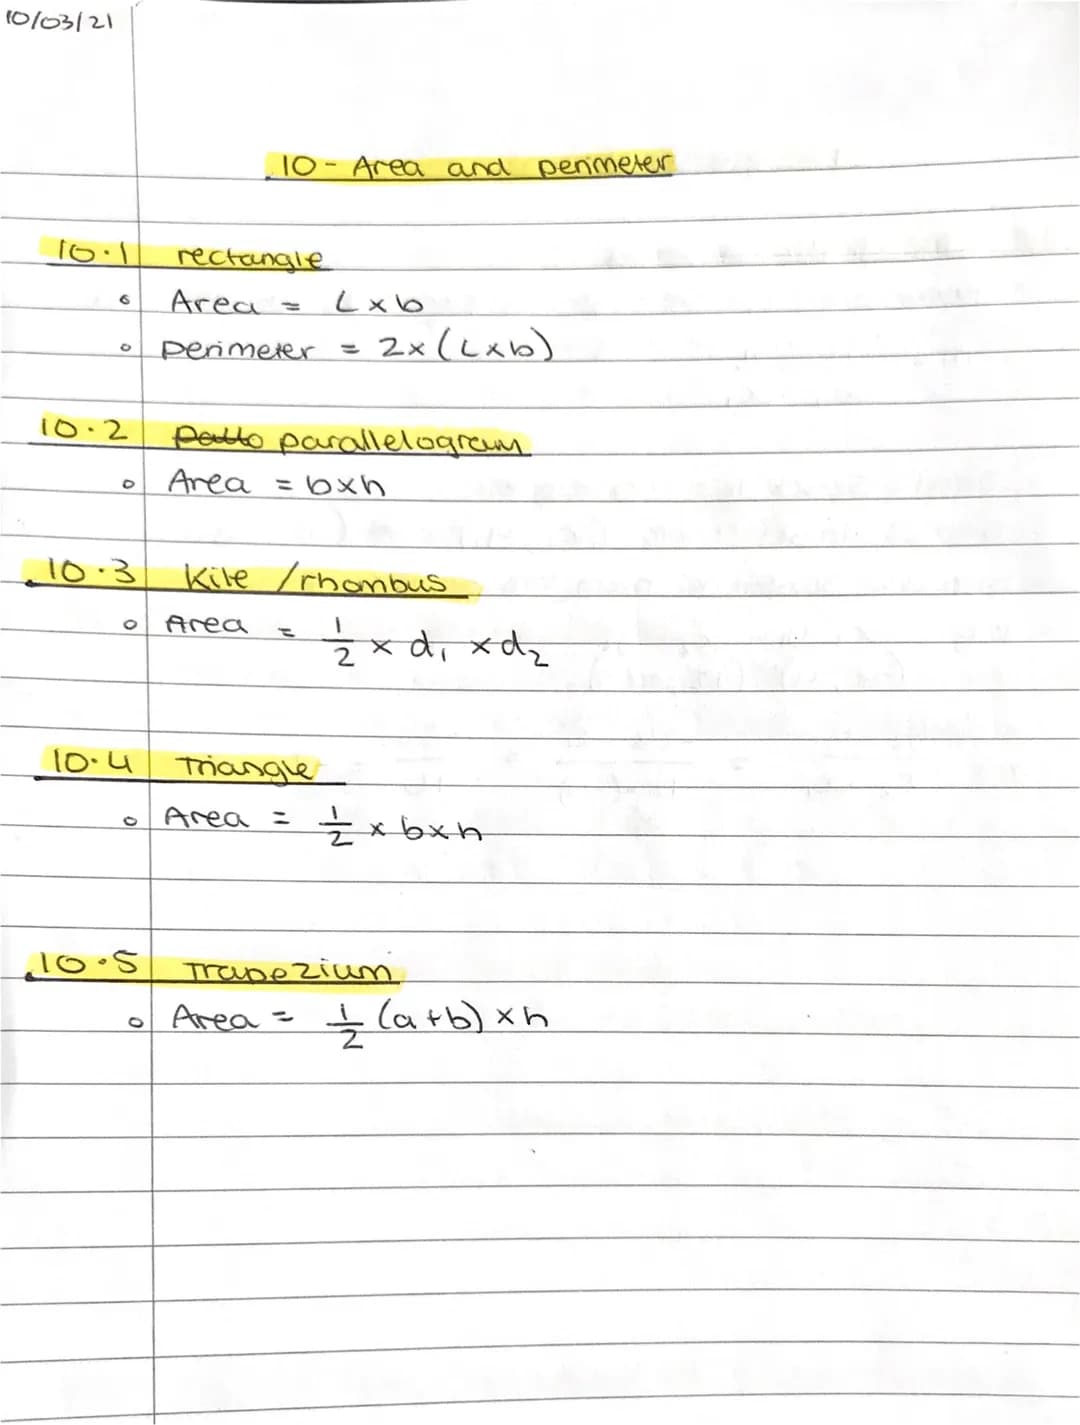 10/03/21
10 - Area and perimeter
10.1 rectangle
Area = L x b
perimeter = 2x (L x b)
10.2 parallelogram
Area = b x h
10.3 Kite / rhombus
Area = 1/2 x d₁ x d₂
10.4 Triangle
Area = 1/2 x b x h
10.5 Trapezium
Area = 1/2 (a + b) x h